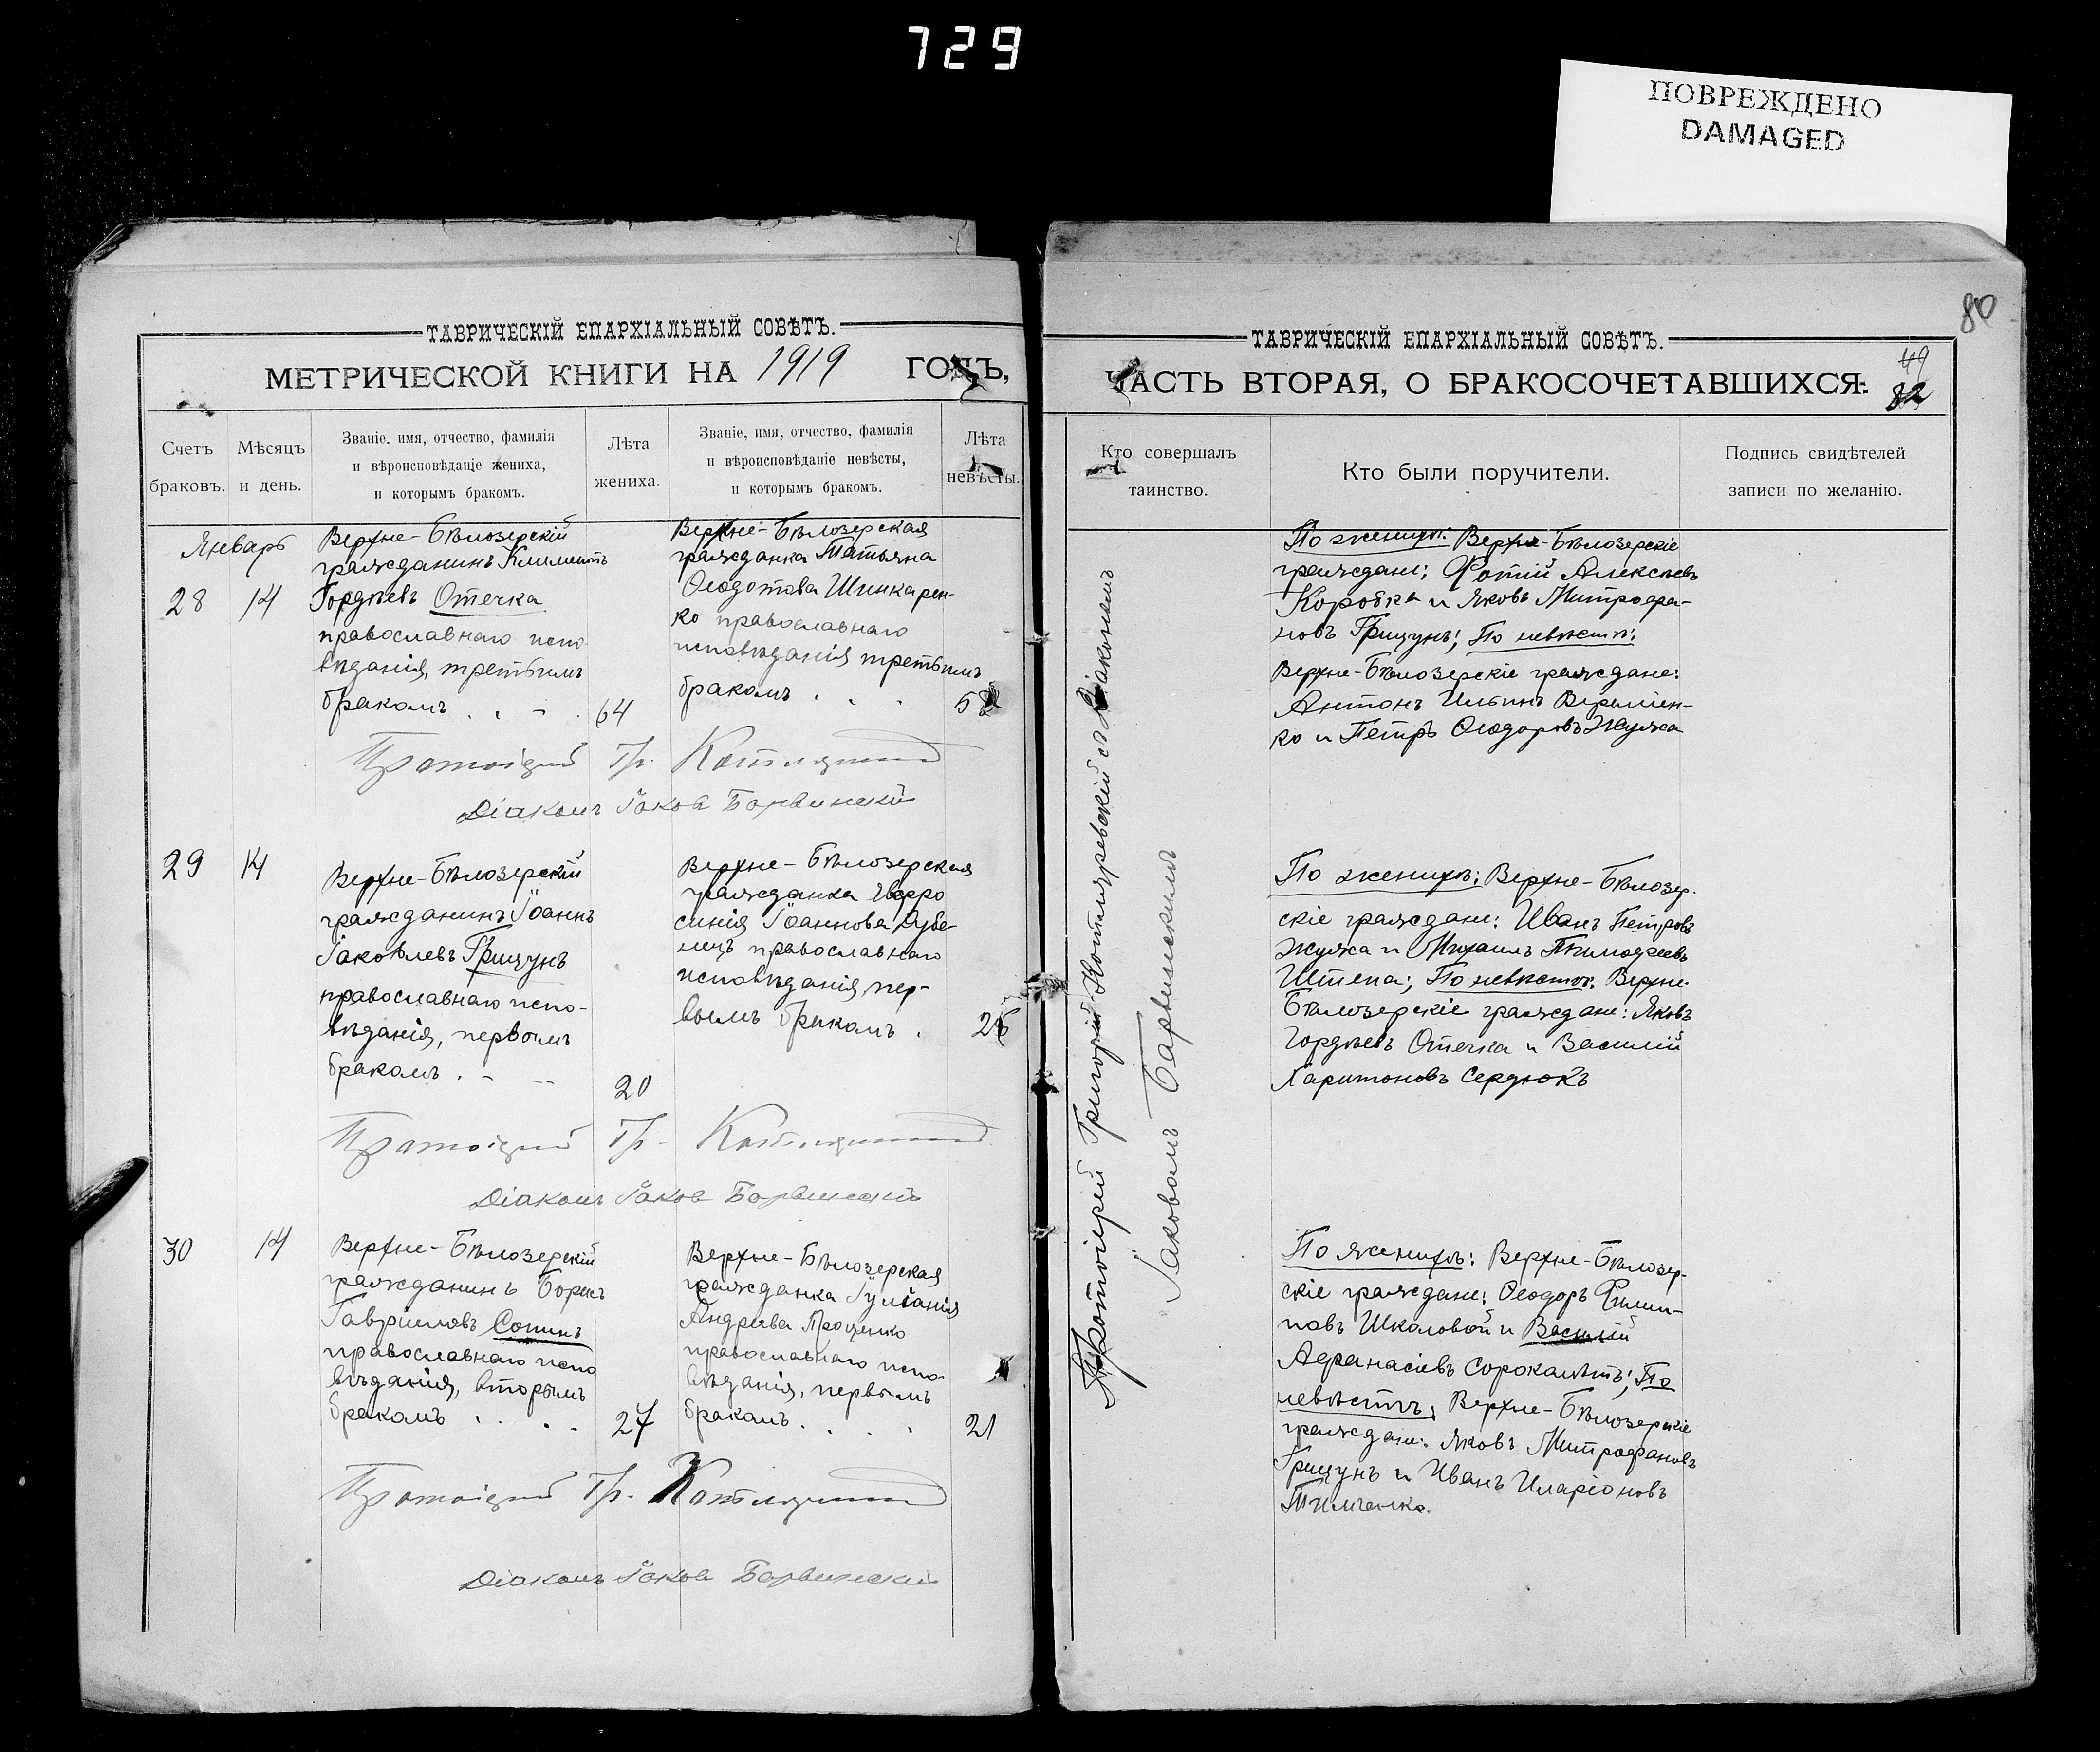 729
ПОВРЕЖДЕНО
DAMAGED
80
ТАВРИЧЕСКІЙ ЕПАРХІАЛЬНЫЙ СОВѢТЪ.
МЕТРИЧЕСКОЙ КНИГИ НА 1919 ГОДЪ,
Счетъ браковъ.
Мѣсяцъ и день.
Званіе, имя, отчество, фамилія
и вѣроисповѣданіе жениха,
и которымъ бракомъ.
Лѣта
жениха.
Званіе, имя, отчество, фамилія
и вѣроисповѣданіе невѣсты,
и которымъ бракомъ.
Лѣта
невѣсты.
Январь
28
14
Верхне-Бѣлозерскій
гражданинъ Климентъ
Гордѣевъ Отечка
православнаго испо
вѣданія, третьимъ
бракомъ
64
Верхне-Бѣлозерская
гражданка Татьяна
Ѳеодотова Шинкарен-
ко православнаго
исповѣданія третьимъ
бракомъ
52
Протоіерей Гр.
Діаконъ Іаковъ
29
14
Верхне-Бѣлозерскій
гражданинъ Іоаннъ
Іаковлевъ Грицунъ
православнаго испо-
вѣданія, первымъ
бракомъ
20
Верхне-Бѣлозерская
гражданка Евфро
синія Іоаннова Дубе-
нецъ православнаго
исповѣданія, пер-
вымъ бракомъ
26
Протоіерей Гр.
Діаконъ Іаковъ
30
14
Верхне-Бѣлозерскій
гражданинъ Борисъ
Гавріиловъ Сопинъ
православнаго испо
вѣданія, вторымъ
бракомъ
27
Верхне-Бѣлозерская
гражданка Іуліанія
Андреева Проценко
православнаго испо-
вѣданія, первымъ
бракомъ
21
Протоіерей Гр.
Діаконъ Іаковъ
ТАВРИЧЕСКІЙ ЕПАРХІАЛЬНЫЙ СОВѢТЪ.
ЧАСТЬ ВТОРАЯ, О БРАКОСОЧЕТАВШИХСЯ:
49
82
Кто совершалъ
таинство.
Кто были поручители.
Подпись свидѣтелей
записи по желанію.
Протоіерей Григорій съ Діакономъ
Іаковомъ
По женихѣ: Верхне-Бѣлозерскіе
граждане: Фотій Алексѣевъ
Коробка и Яковъ Митрофа-
новъ Грицунъ; По невѣстѣ:
Верхне-Бѣлозерскіе граждане:
Антонъ Ильинъ Веремiен-
ко и Петръ Ѳеодоровъ Жужа
По женихѣ: Верхне-Бѣлозер-
скіе граждане: Иванъ Петровъ
Жужа и Михаилъ Тимофеевъ
Штепа; По невѣстѣ: Верхне-
Бѣлозерскіе граждане: Яковъ
Гордѣевъ Отечка и Василій
Харитоновъ Сердюкъ
По женихѣ: Верхне-Бѣлозер-
скіе граждане: Ѳеодоръ Филип-
повъ Школовой и Василій
Афанасіевъ Сорокалѣтъ; По
невѣстѣ: Верхне-Бѣлозерскіе
граждане: Яковъ Митрофановъ
Грицунъ и Иванъ Иларіоновъ
Тимченко.